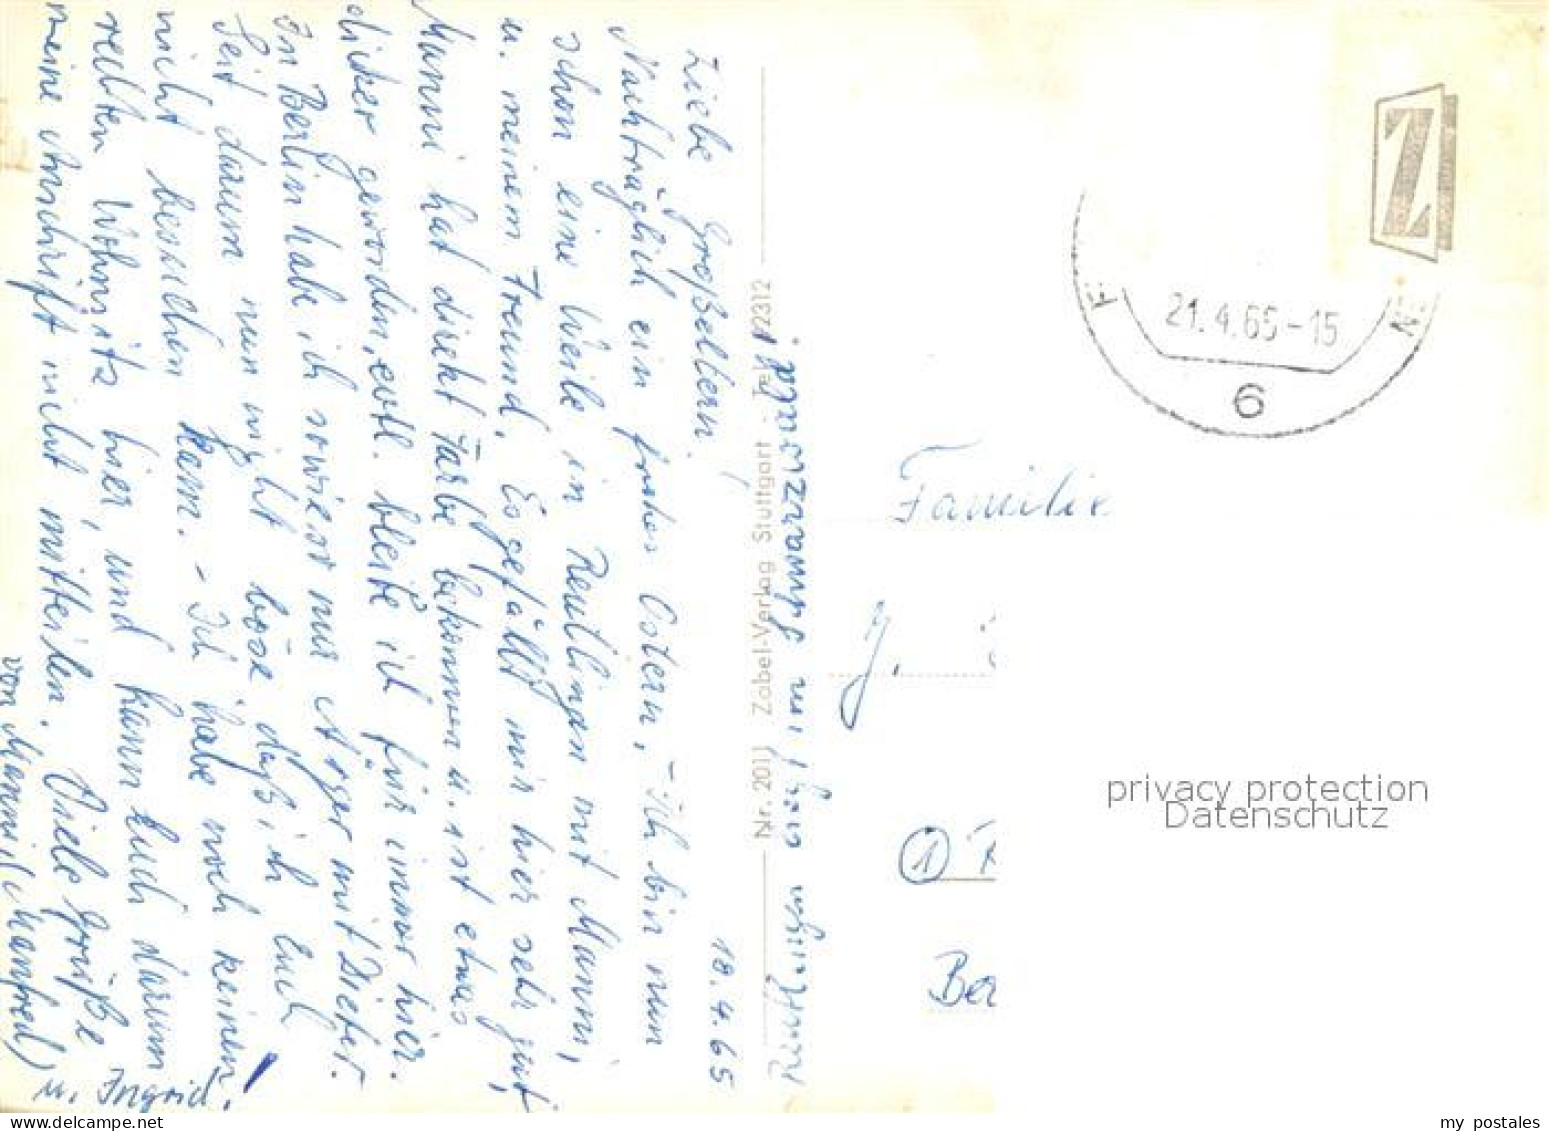 18.4.65
Liebe Großeltern!
Nachträglich ein frohes Ostern, – Ich bin nun
schon eine Weile in Reutlingen mit Manni,
u. meinem Freund. Es gefällt mir hier sehr gut,
Manni hat direkt Farbe bekommen u. ist etwas
dicker geworden, evtl. bleibe ich für immer hier.
In Berlin habe ich sowieso nur Ärger mit Dieter.
Seit darum nun nicht böse, daß ich Euch
nicht besuchen kam. – Ich habe noch keinen
rechten Wohnsitz hier, und kann Euch darum
meine Anschrift nicht mitteilen. Viele Grüße
von Manni (Manfred)
u. Ingrid!
Nr. 2011 Zobel-Verlag Stuttgart · Tel. 72312
Reutlingen liegt im Schwarzwald!
Z
21.4.65-15
6
Familie
J.
1
Ber
privacy protection
Datenschutz
my postales